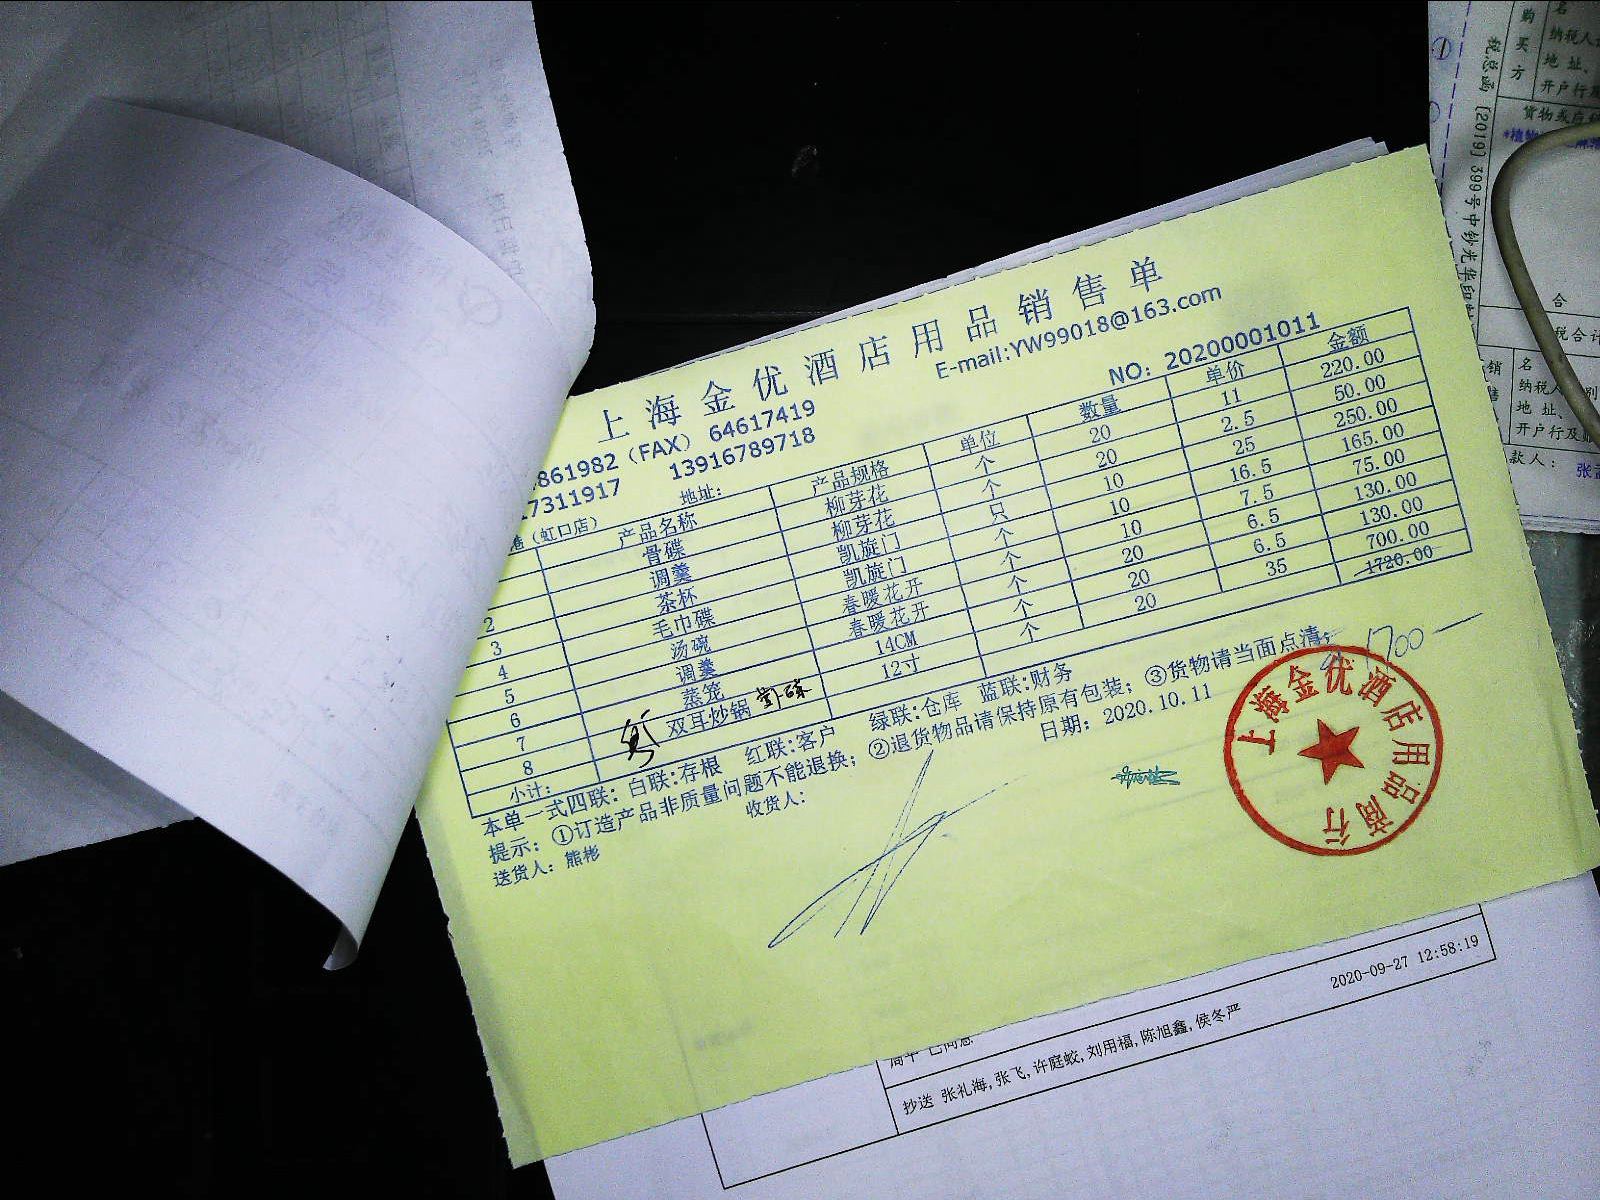 上海金优酒店用品销售单
E-mail:YW99018@163.com
861982（FAX）64617419
17311917 13916789718
NO：20200001011
（虹口店） 地址：
产品名称 产品规格 单位 数量 单价 金额
骨碟 柳芽花 个 20 11 220.00
2 调羹 柳芽花 个 20 2.5 50.00
3 茶杯 凯旋门 只 10 25 250.00
4 毛巾碟 凯旋门 个 10 16.5 165.00
5 汤碗 春暖花开 个 10 7.5 75.00
6 调羹 春暖花开 个 20 6.5 130.00
7 蒸笼 14CM 个 20 6.5 130.00
8 双耳炒锅 12寸 个 20 35 700.00
小计： 1720.00
1700
本单一式四联：白联:存根 红联:客户 绿联:仓库 蓝联:财务
提示：①订造产品非质量问题不能退换；②退货物品请保持原有包装；③货物请当面点清；
送货人：熊彬 收货人： 日期：2020.10.11
上海金优酒店用品商行
2020-09-27 12:58:19
抄送 张礼海,张飞,许庭蛟,刘用福,陈旭鑫,侯冬严
税总函〔2019〕399号中钞光华印
购买方
名
纳税人
地址、
开户行及
货物或应
合
税合计
销售
名
纳税人 别
地址、
开户行及
款人：